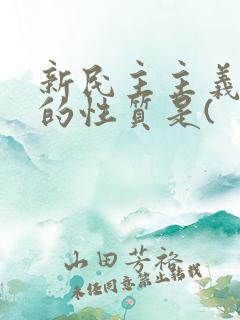 新民主主義
的性質是(
山田芳裕
未经同意禁止转载